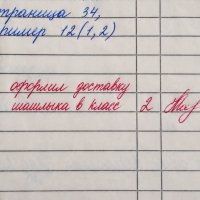 страница 34,
пример 12(1,2)
оформил доставку
шашлыка в класс 2